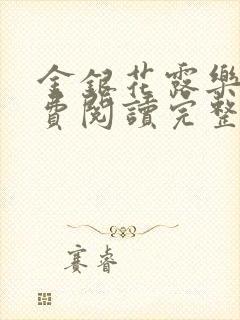 金銀花露樂
費閱讀完整
賽睿